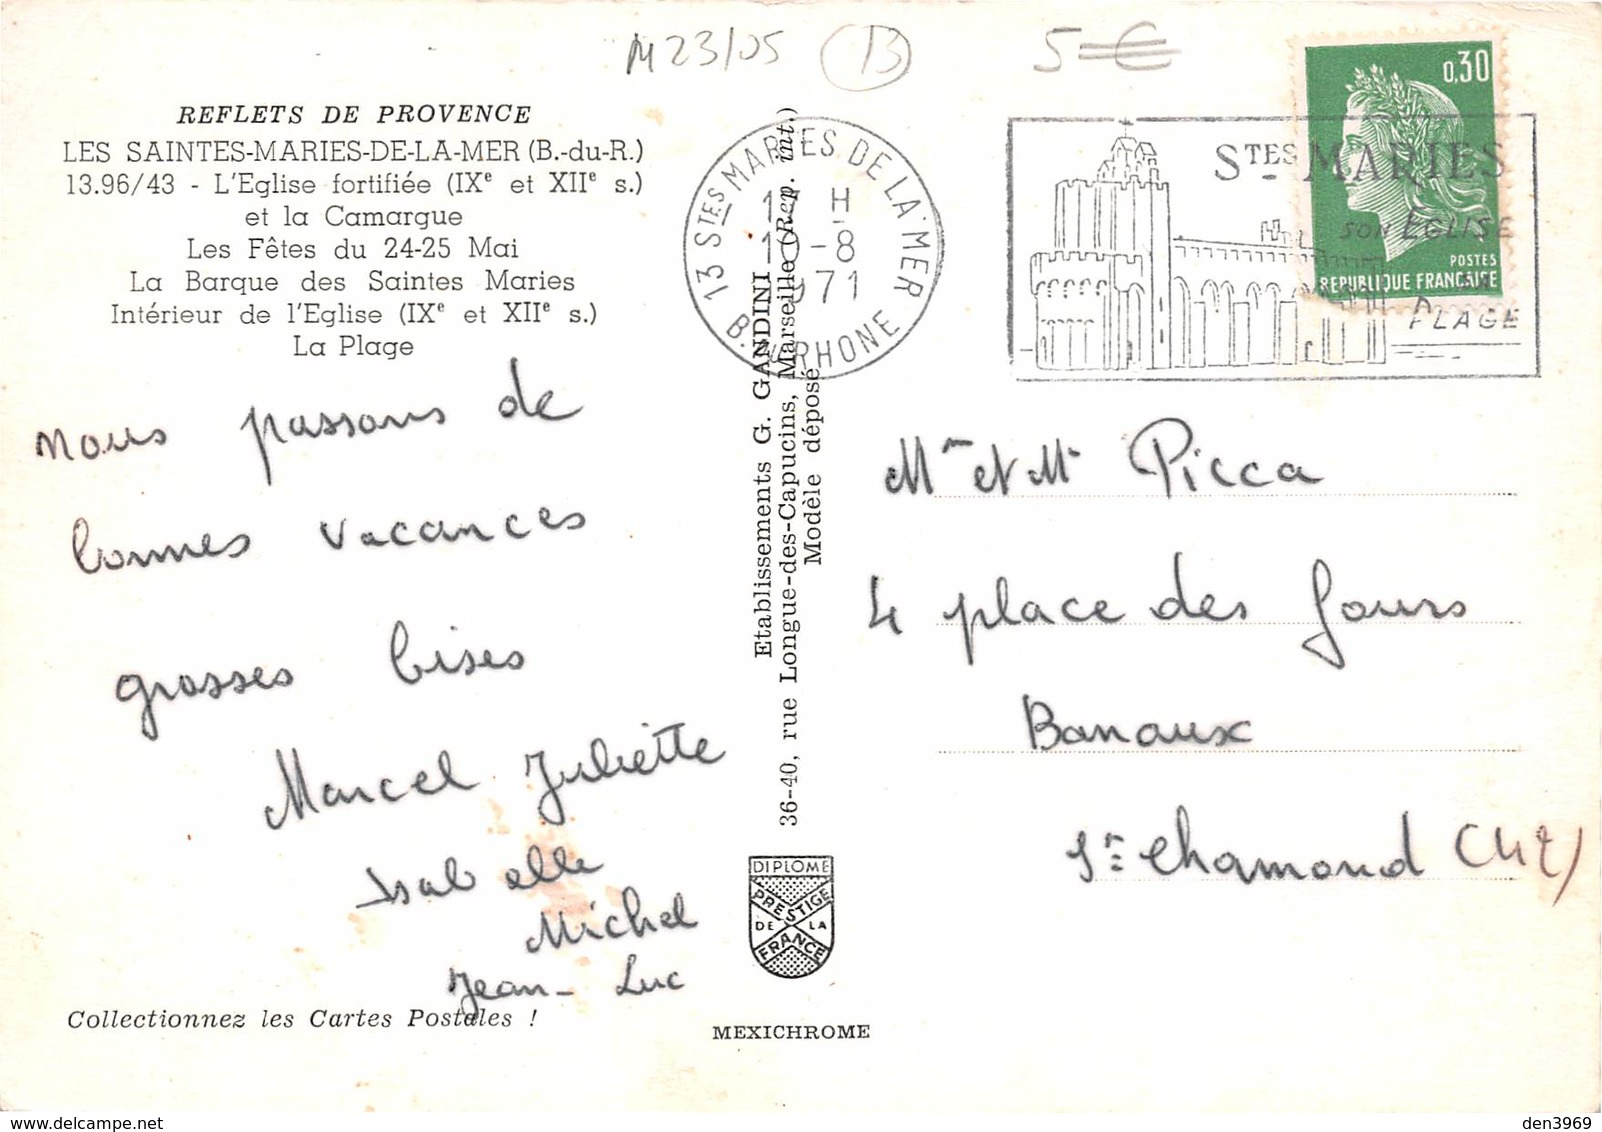 M23/05 13 5 €
REFLETS DE PROVENCE
LES SAINTES-MARIES-DE-LA-MER (B.-du-R.)
13.96/43 - L'Eglise fortifiée (IXe et XIIe s.)
et la Camargue
Les Fêtes du 24-25 Mai
La Barque des Saintes Maries
Intérieur de l'Eglise (IXe et XIIe s.)
La Plage
nous passons de
bonnes vacances
grosses bises
Marcel Juliette
Isabelle
Michel
Jean-Luc
Collectionnez les Cartes Postales !
Etablissements G. GANDINI
36-40, rue Longue-des-Capucins, Marseille (Rep. int.)
Modèle déposé
DIPLOME
PRESTIGE
DE LA
FRANCE
MEXICHROME
13 STES MARIES DE LA MER
H
10-8
1971
B. DU RHONE
STES MARIES
SON EGLISE
SA PLAGE
0,30
POSTES
REPUBLIQUE FRANCAISE
Mme et Mr Picca
4 place des Fours
Banaux
St Chamond (42)
delcampe.net
den3969